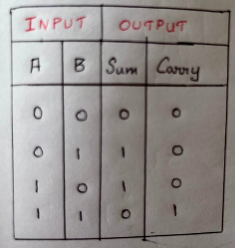 INPUT OUTPUT
A B Sum Carry
0 0 0 0
0 1 1 0
1 0 1 0
1 1 0 1